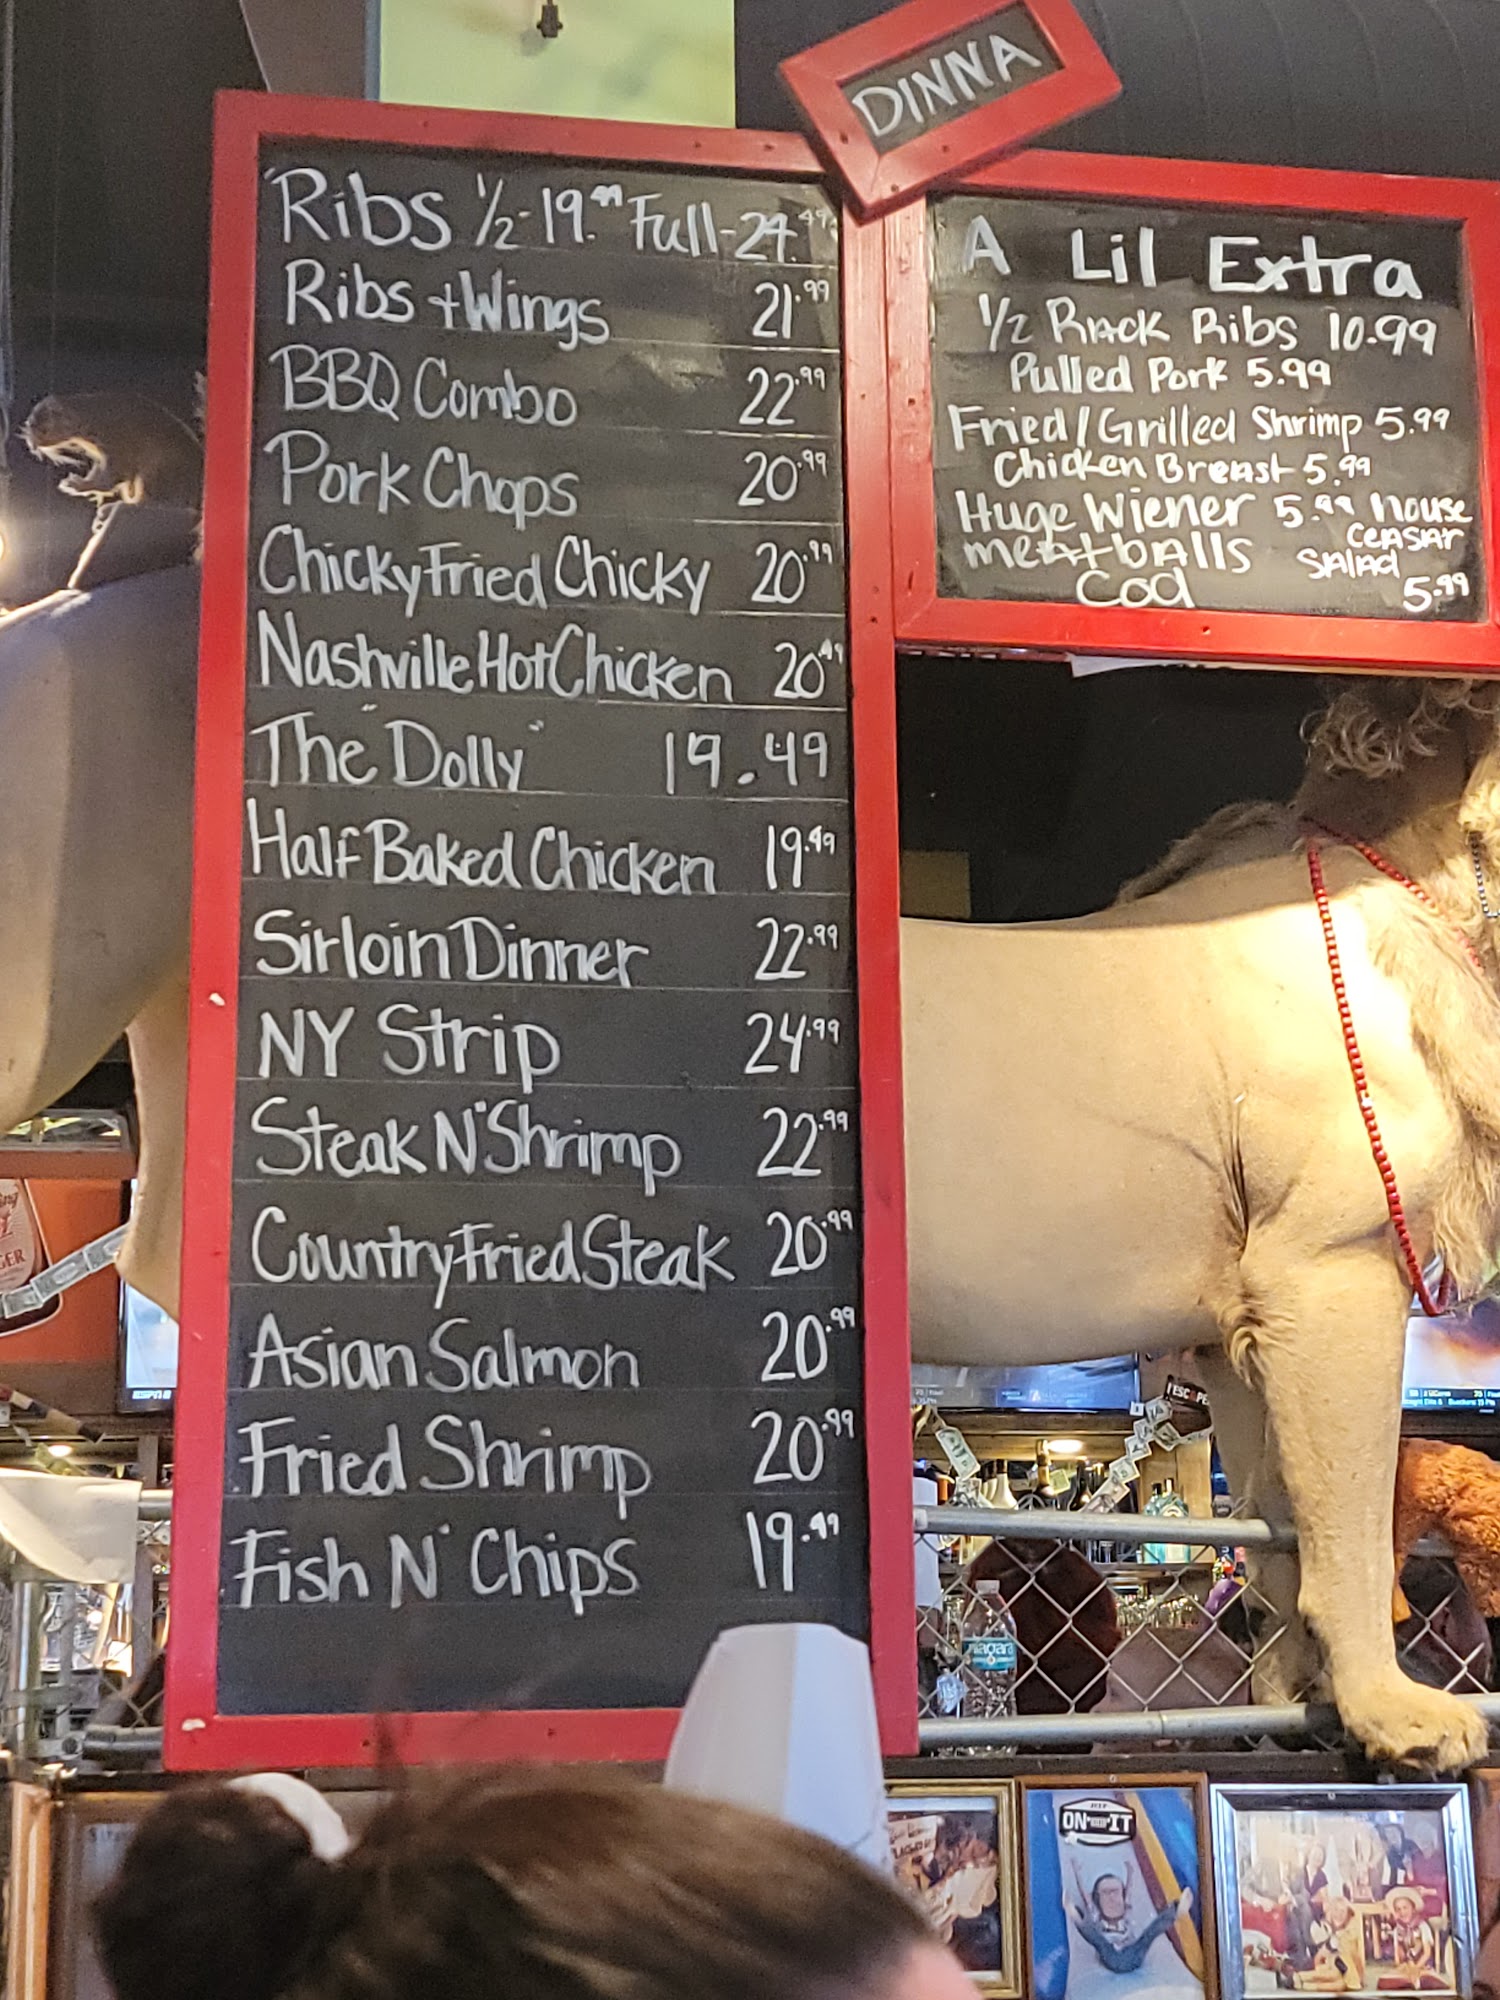 DINNA
Ribs 1/2-19. Full-24.49
Ribs + Wings 21.99
BBQ Combo 22.99
Pork Chops 20.99
Chicky Fried Chicky 20.99
Nashville Hot Chicken 20.49
The "Dolly" 19.49
Half Baked Chicken 19.49
Sirloin Dinner 22.99
NY Strip 24.99
Steak N' Shrimp 22.99
Country Fried Steak 20.99
Asian Salmon 20.99
Fried Shrimp 20.99
Fish N' Chips 19.49
A Lil Extra
1/2 Rack Ribs 10.99
Pulled Pork 5.99
Fried/Grilled Shrimp 5.99
Chicken Breast 5.99
Huge Wiener 5.99 house
meatballs Ceasar
Cod Salad
5.99
ESPN
niagara
ON IT